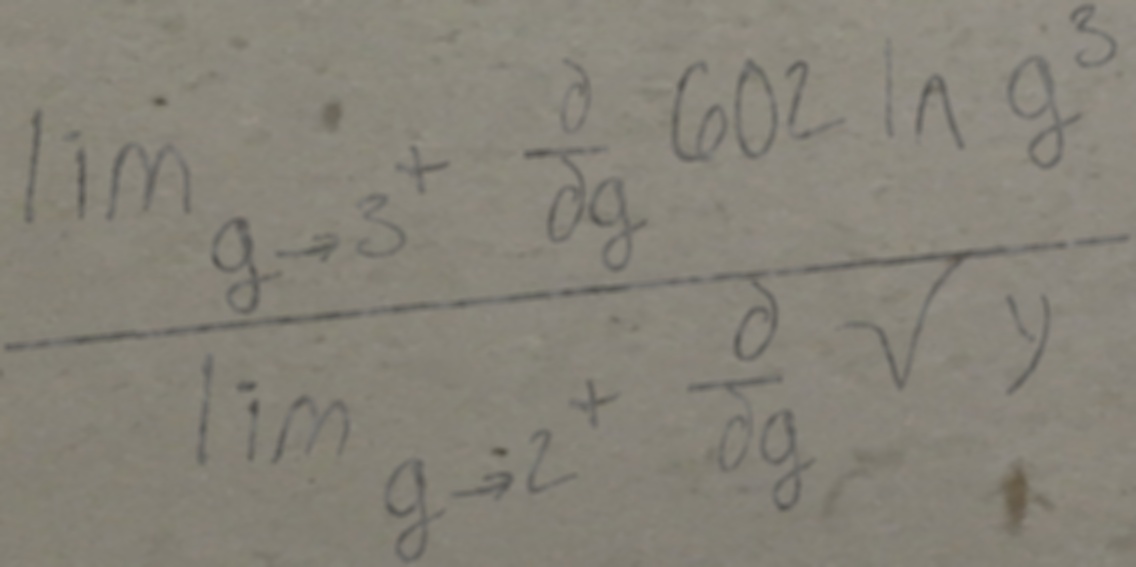 lim g→3⁺ ∂/∂g 602 ln g³
lim g→2⁺ ∂/∂g √y